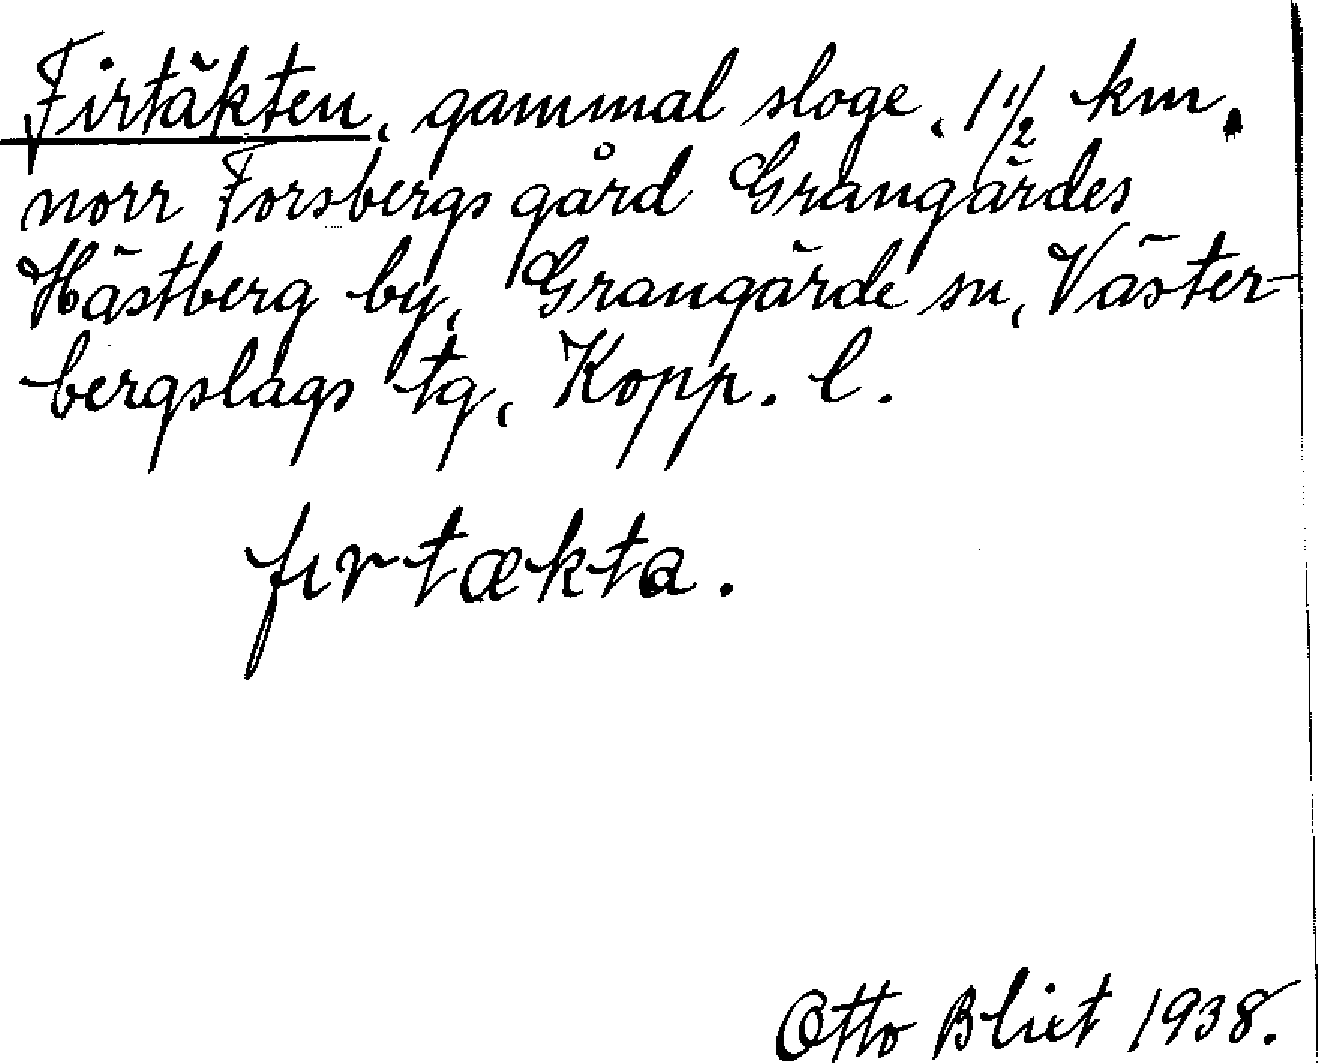 Firtäkten, gammal sloge, 1 1/2 km.
norr Forsbergs gård Grangärdes
Hästberg by, Grangärde sn, Väster-
bergslags tg, Kopp. l.
firtækta.
Otto Blixt 1938.